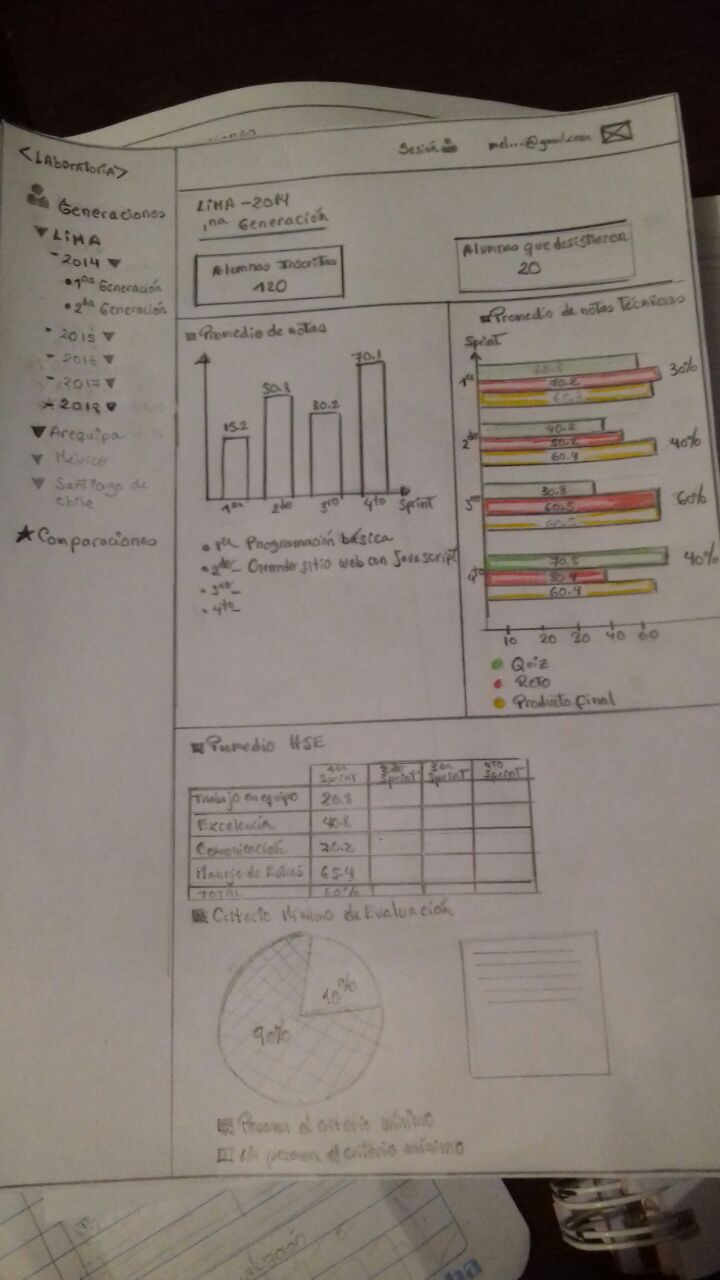 <LABORATORIA>
Generaciones
LIMA
- 2014
1ra Generación
2da Generación
- 2015
- 2016
- 2017
2018
Arequipa
México
Santiago de
Chile
Comparaciones
Sesión
mel...@gmail.com
LIMA - 2014
1na Generación
Alumnas Inscritas
120
Alumnas que desistieron
20
Promedio de notas
15.2
50.1
30.2
70.1
1er
2do
3ro
4to
Sprint
1er Programación básica
2do Creando sitio web con Javascript
3ro
4to
Promedio de notas Técnicas
Sprint
1er
70.2
30%
2do
40.8
50.2
60.4
40%
3ro
30.8
60.5
60.5
60%
4to
70.2
30.4
60.4
40%
10 20 30 40 60
Quiz
Reto
Producto final
Promedio HSE
1er Sprint 2do Sprint 3er Sprint 4to Sprint
Trabajo en equipo 20.8
Excelencia 40.8
Comunicación 70.2
65.4
TOTAL 60%
Criterio Mínimo de Evaluación
90%
10%
el criterio mínimo
el criterio mínimo